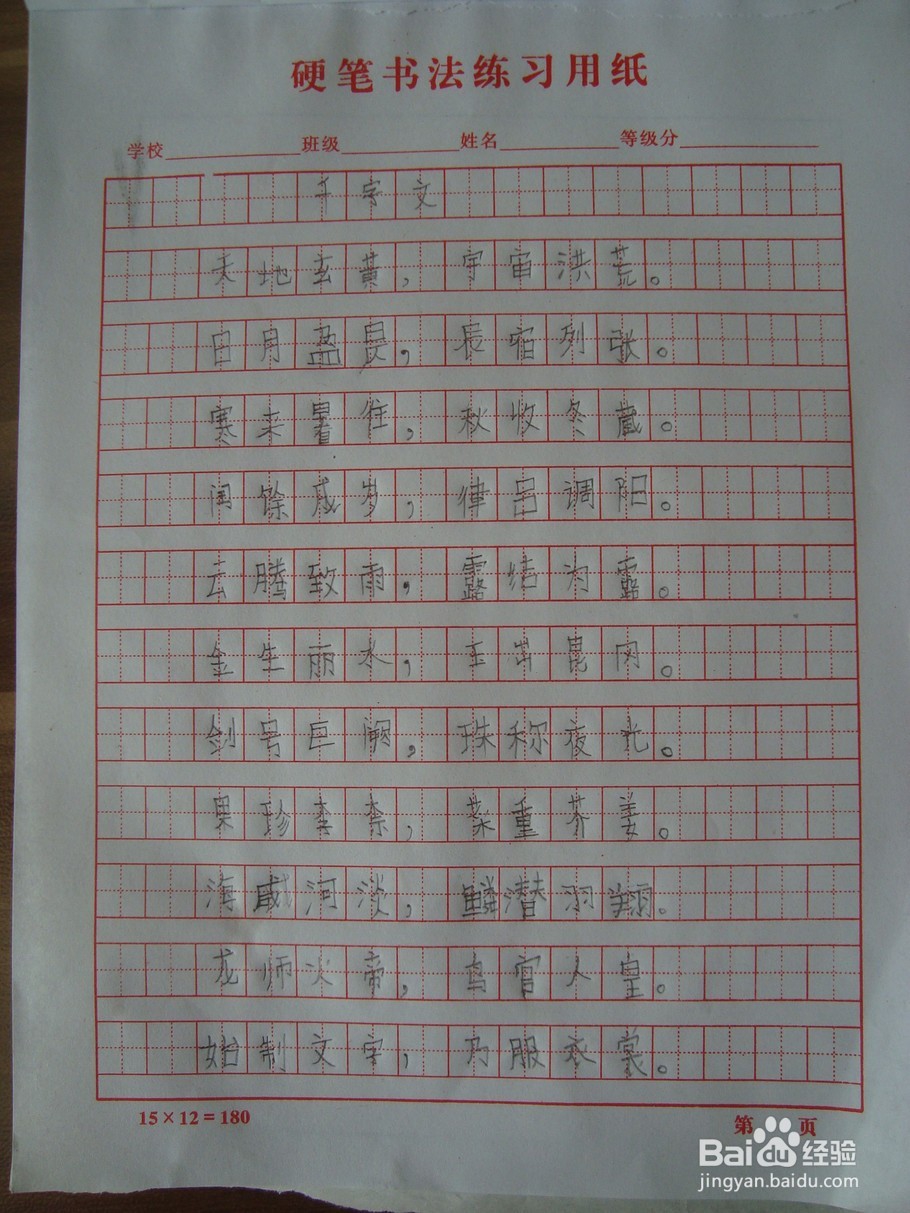 硬笔书法练习用纸
学校 班级 姓名 等级分
千字文
天地玄黄，宇宙洪荒。
日月盈昃，辰宿列张。
寒来暑往，秋收冬藏。
闰馀成岁，律吕调阳。
云腾致雨，露结为露。
金生丽水，玉出昆冈。
剑号巨阙，珠称夜光。
果珍李柰，菜重芥姜。
海咸河淡，鳞潜羽翔。
龙师火帝，鸟官人皇。
始制文字，乃服衣裳。
15×12=180
第 页
Baidu经验
jingyan.baidu.com